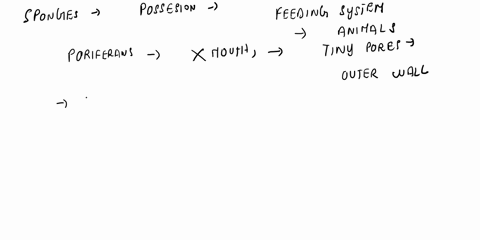 SPONGES → POSSESION → FEEDING SYSTEM
→ ANIMALS
PORIFERANS → X MOUTH, → TINY PORES →
OUTER WALL
→